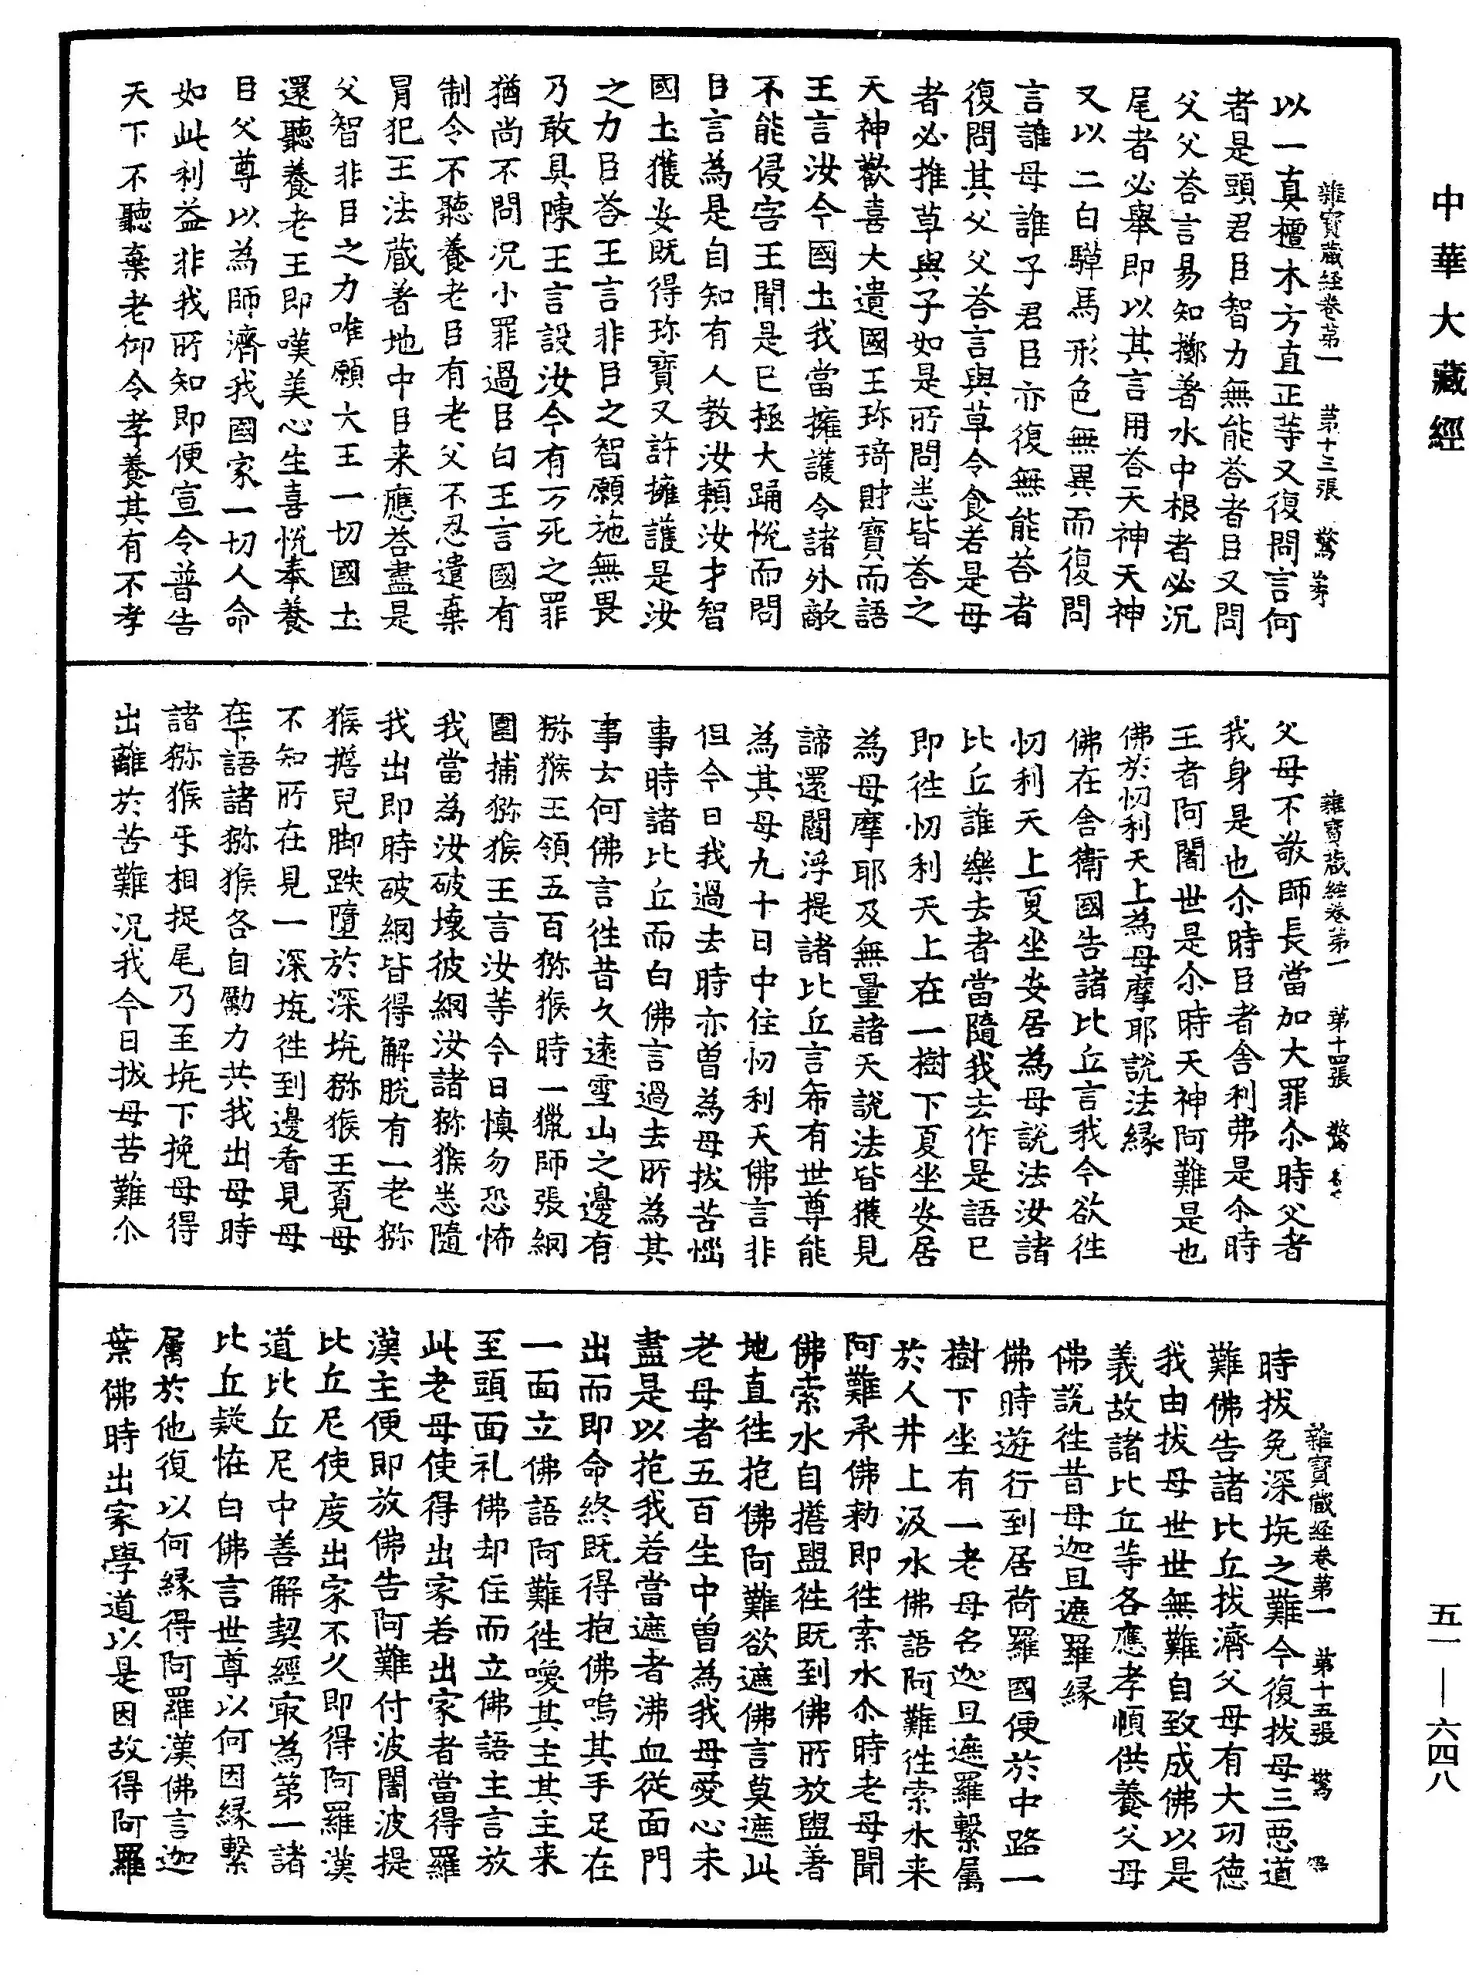 中華大藏經
雜寶藏經卷第一 第十三張 驚
以一真檀木方直正等又復問言何
者是頭君臣智力無能荅者臣又問
父父荅言易知擲著水中根者必沉
尾者必舉即以其言用荅天神天神
又以二白騲馬形色無異而復問
言誰母誰子君臣亦復無能荅者
復問其父父荅言與草令食若是母
者必推草與子如是所問悉皆荅之
天神歡喜大遺國王珎琦財寶而語
王言汝今國土我當擁護令諸外敵
不能侵害王聞是已極大踊悅而問
臣言為是自知有人教汝頼汝才智
國土獲安既得珎寶又許擁護是汝
之力臣荅王言非臣之智願施無畏
乃敢具陳王言設汝今有万死之罪
猶尚不問況小罪過臣白王言國有
制令不聽養老臣有老父不忍遣棄
冒犯王法藏著地中臣来應荅盡是
父智非臣之力唯願大王一切國土
還聽養老王即嘆美心生喜悅奉養
臣父尊以為師濟我國家一切人命
如此利益非我所知即便宣令普告
天下不聽棄老仰令孝養其有不孝
雜寶藏經卷第一 第十四張 驚
父母不敬師長當加大罪尒時父者
我身是也尒時臣者舍利弗是尒時
王者阿闍世是尒時天神阿難是也
佛於忉利天上為母摩耶說法緣
佛在舍衛國告諸比丘言我今欲往
忉利天上夏坐安居為母說法汝諸
比丘誰樂去者當隨我去作是語已
即往忉利天上在一樹下夏坐安居
為母摩耶及無量諸天說法皆獲見
諦還閻浮提諸比丘言希有世尊能
為其母九十日中住忉利天佛言非
但今日我過去時亦曾為母拔苦惱
事時諸比丘而白佛言過去所為其
事云何佛言往昔久遠雪山之邊有
猕猴王領五百猕猴時一獵師張網
圍捕猕猴王言汝等今日慎勿恐怖
我當為汝破壞彼網汝諸猕猴悉隨
我出即時破網皆得解脫有一老猕
猴擔兒脚跌墮於深坑猕猴王覓母
不知所在見一深坑往到邊看見母
在下語諸猕猴各自勵力共我出母時
諸猕猴乎相捉尾乃至坑下挽母得
出離於苦難況我今日拔母苦難尒
雜寶藏經卷第一 第十五張 驚
時拔免深坑之難今復拔母三惡道
難佛告諸比丘拔濟父母有大功德
我由拔母世世無難自致成佛以是
義故諸比丘等各應孝順供養父母
佛說往昔母迦旦遮羅緣
佛時遊行到居荷羅國便於中路一
樹下坐有一老母名迦旦遮羅繫屬
於人井上汲水佛語阿難往索水来
阿難承佛勑即往索水尒時老母聞
佛索水自擔盥往既到佛所放盥著
地直往抱佛阿難欲遮佛言莫遮此
老母者五百生中曾為我母愛心未
盡是以抱我若當遮者沸血從面門
出而即命終既得抱佛嗚其手足在
一面立佛語阿難往喚其主其主来
至頭面礼佛却住而立佛語主言放
此老母使得出家若出家者當得羅
漢主便即放佛告阿難付波闍波提
比丘尼使度出家不久即得阿羅漢
道比丘尼中善解契經㝡為第一諸
比丘疑恠白佛言世尊以何因緣繫
屬於他復以何緣得阿羅漢佛言迦
葉佛時出家學道以是因故得阿羅
五一—六四八